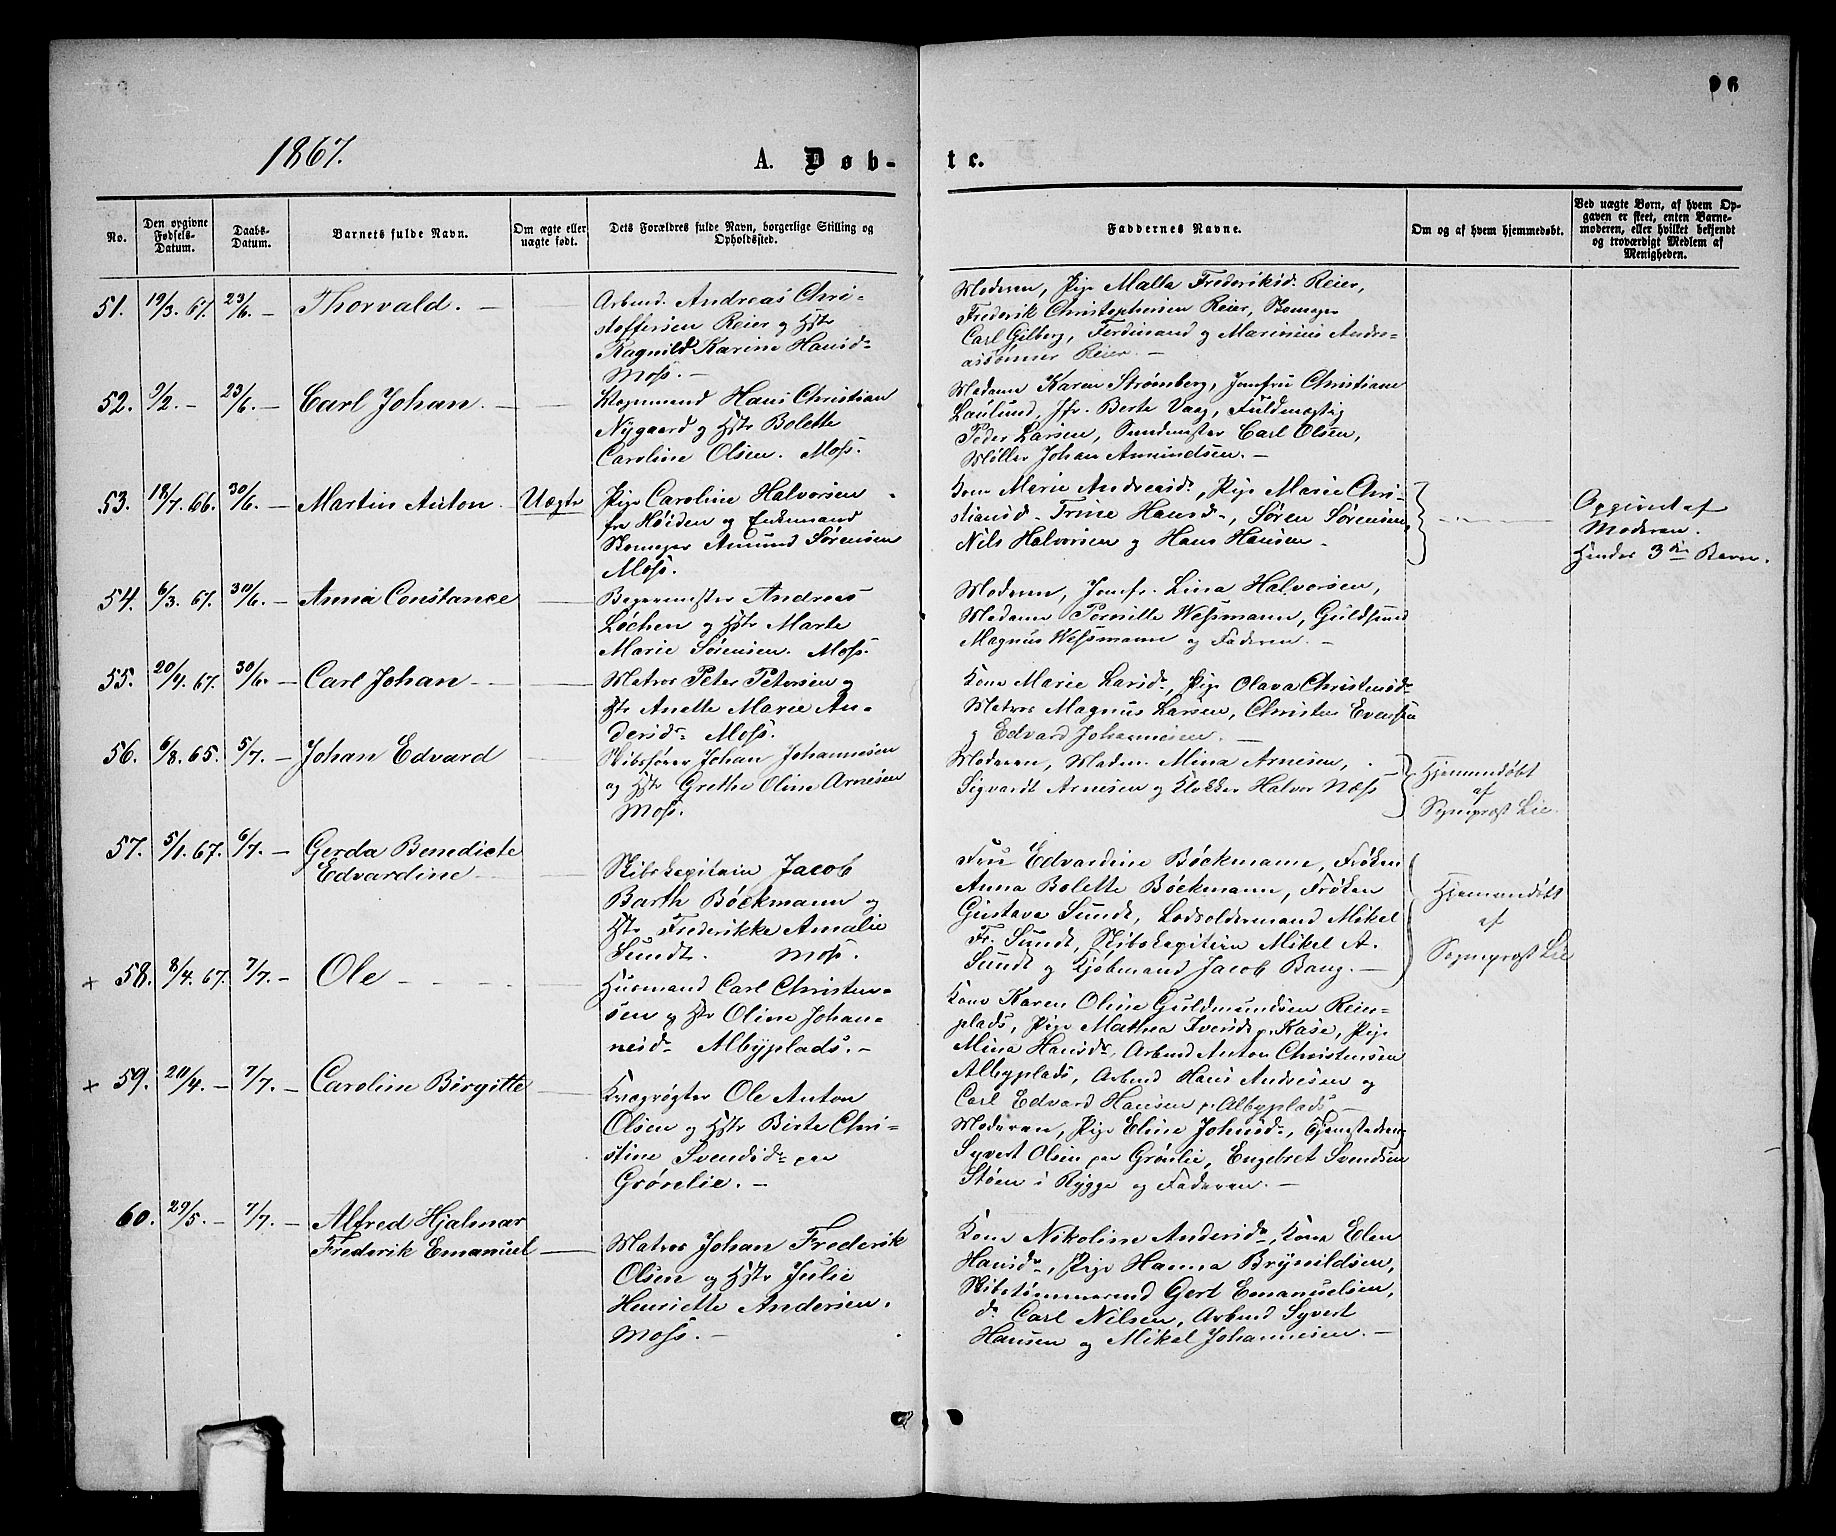 96
1867.
A. Døb-
te.
No.
Den opgivne Fødsels-Datum.
Daabs-Datum.
Barnets fulde Navn.
Om ægte eller uægte født.
Dets Forældres fulde Navn, borgerlige Stilling og Opholdssted.
Faddernes Navne.
Om og af hvem hjemmedøbt.
Ved uægte Børn, af hvem Opgaven er skeet, enten Barnemoderen, eller hvilket bekjendt og troværdigt Medlem af Menigheden.
51. 19/3. 67. 23/6. — Thorvald. —
Arbmd. Andreas Chri-
stoffersen Reier og Hstr
Ragnild Karine Hansd-
Moss. —
Moderen, Pige Malla Frederiksd. Reier,
Frederik Christophersen Reier,
Carl Gilberg, Ferdinand og Marinius Andre-
assønner Reier. —
52. 9/2. — 23/6. — Carl Johan. —
Vognmand Hans Christian
Nygaard og Hstr Bolette
Caroline Olsen. Moss.
Madam Karen Strømberg, Jomfru Christiane
Laulund, Jfr. Berte Vaag, Fuldmægtig
Peder Larsen, Carl Olsen,
Møller Johan Amundsen. —
53. 18/7. 66. 30/6. — Martin Anton. Uægte
Pige Caroline Halvorsen
fra Høiden og Enkemand
Amund Sørensen
Moss.
Kone Marie Andreasd., Pige Marie Chri-
stiansd. Trine Hansd., Søren Sørensen,
Nils Halvorsen og Hans Hansen.
Opgivet af
Moderen.
Hendes 3die Barn.
54. 6/3. 67. 30/6. — Anna Constance
Bagermester Andreas
Løchen og Hstr Marte
Marie Sørensen. Moss.
Moderen, Jomfr. Lina Halvorsen,
Madam Pernille Wessmann, Guldsmed
Magnus Wessmann og Faderen. —
55. 20/1. 67. 30/6. — Carl Johan
Matros Peter Petersen og
Hstr Anette Marie An-
dersd. Moss.
Kone Marie Larsd., Pige Olava Christensd.
Matros Magnus Larsen, Christen Evensen
og Edvard Johannesen. —
56. 6/8. 65. 5/7. — Johan Edvard
Skibsfører Johan Johannesen
og Hstr Grethe Oline Arnesen
Moss.
Moderen, Madm. Mina Arnesen,
Sigvardt Arnesen og Klokker Halvor Næss
Hjemmedøbt
af
Sogneprest Lie.
57. 5/1. 67. 6/7. — Gerda Benedicte
Edvardine
Skibskapitain Jacob
Barth Bøckmann og
Hstr Frederikke Amalie
Sundt. Moss.
Fru Edvardine Bøckmann, Frøken
Anna Bolette Bøckmann, Frøken
Gustava Sundt, Lodsoldermand Mikel
Fr. Sundt, Skibskapitain Mikel A.
Sundt og Kjøbmand Jacob Bang. —
Hjemmedøbt
af
Sogneprest Lie
+ 58. 8/4. 67. 7/7. — Ole
Husmand Carl Christen-
sen og Hstr Oline Johan-
nesd. Albyplads. —
Kone Karen Oline Guldmundsen Reier-
plads, Pige Mathea Iversd. p. Kase, Pige
Mina Hansd., Arbmd Anton Christensen
Albyplads, Arbmd Hans Andresen og
Carl Edvard Hansen p. Albyplads —
+ 59. 20/4. — 7/7. — Caroline Birgitte
Kvægrøgter Ole Anton
Olsen og Hstr Birte Chri-
stine Svendsd. paa
Grønlie. —
Moderen, Pige Eline Johnsd.,
Syvert Olsen paa Grønlie, Engebret Svendsen
Støen i Rygge og Faderen. —
60. 29/5. — 7/7. — Alfred Hjalmar
Frederik Emanuel —
Matros Johan Frederik
Olsen og Hstr Julie
Henriette Andersen.
Moss. —
Kone Nikoline Andersd., Kone Elen
Hansd., Pige Hanna Brynildsen,
Skibstømmermand Gert Emanuelsen,
do. Carl Nilsen, Arbmd Syvert
Hansen og Mikel Johannesen. —